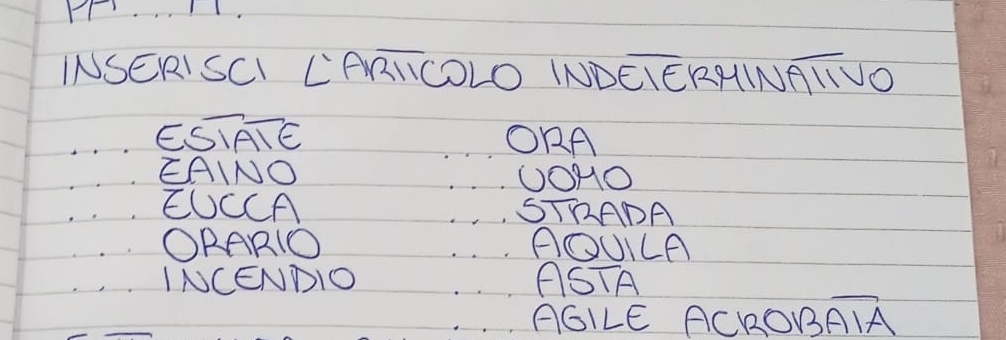 INSERISCI L'ARTICOLO INDETERMINATIVO
.... ESTATE
.... ZAINO
.... ZUCCA
.... ORARIO
.... INCENDIO
... ORA
.... UOMO
... STRADA
.... AQUILA
... ASTA
.... AGILE ACROBATA